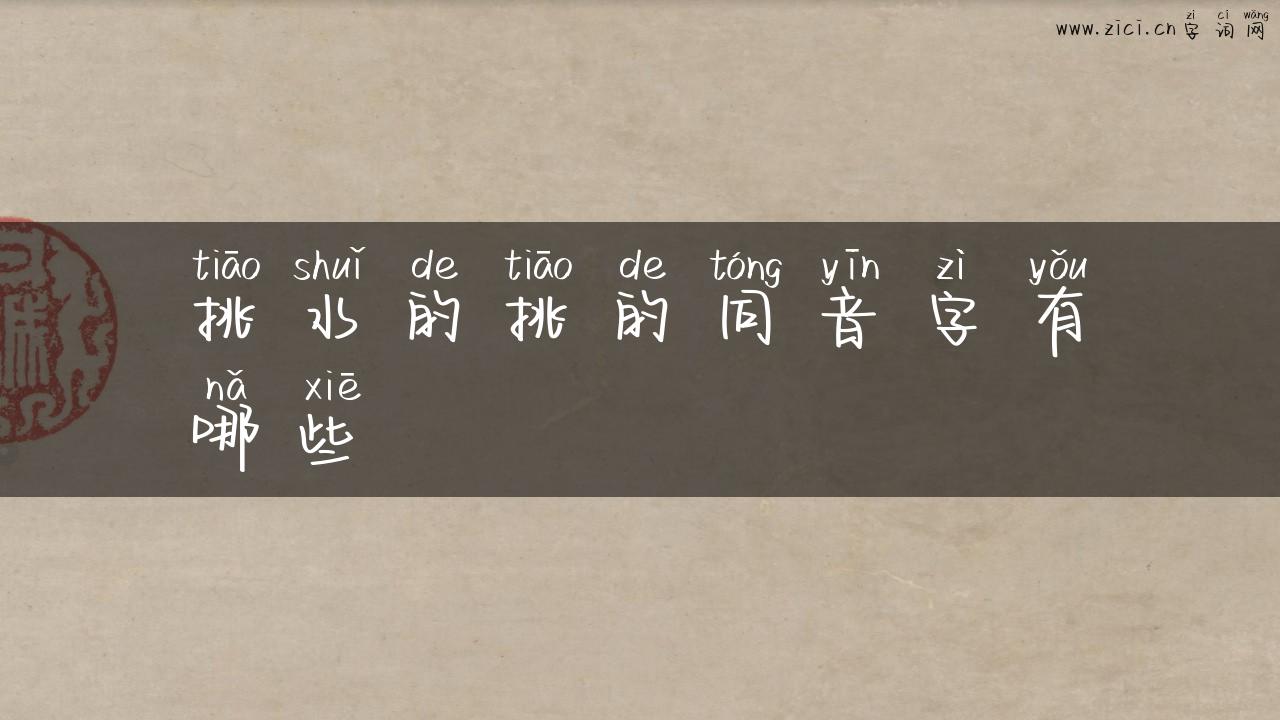 zì cí wǎng
www.zici.cn 字词网
tiāo shuǐ de tiāo de tóng yīn zì yǒu
挑水的挑的同音字有
nǎ xiē
哪些